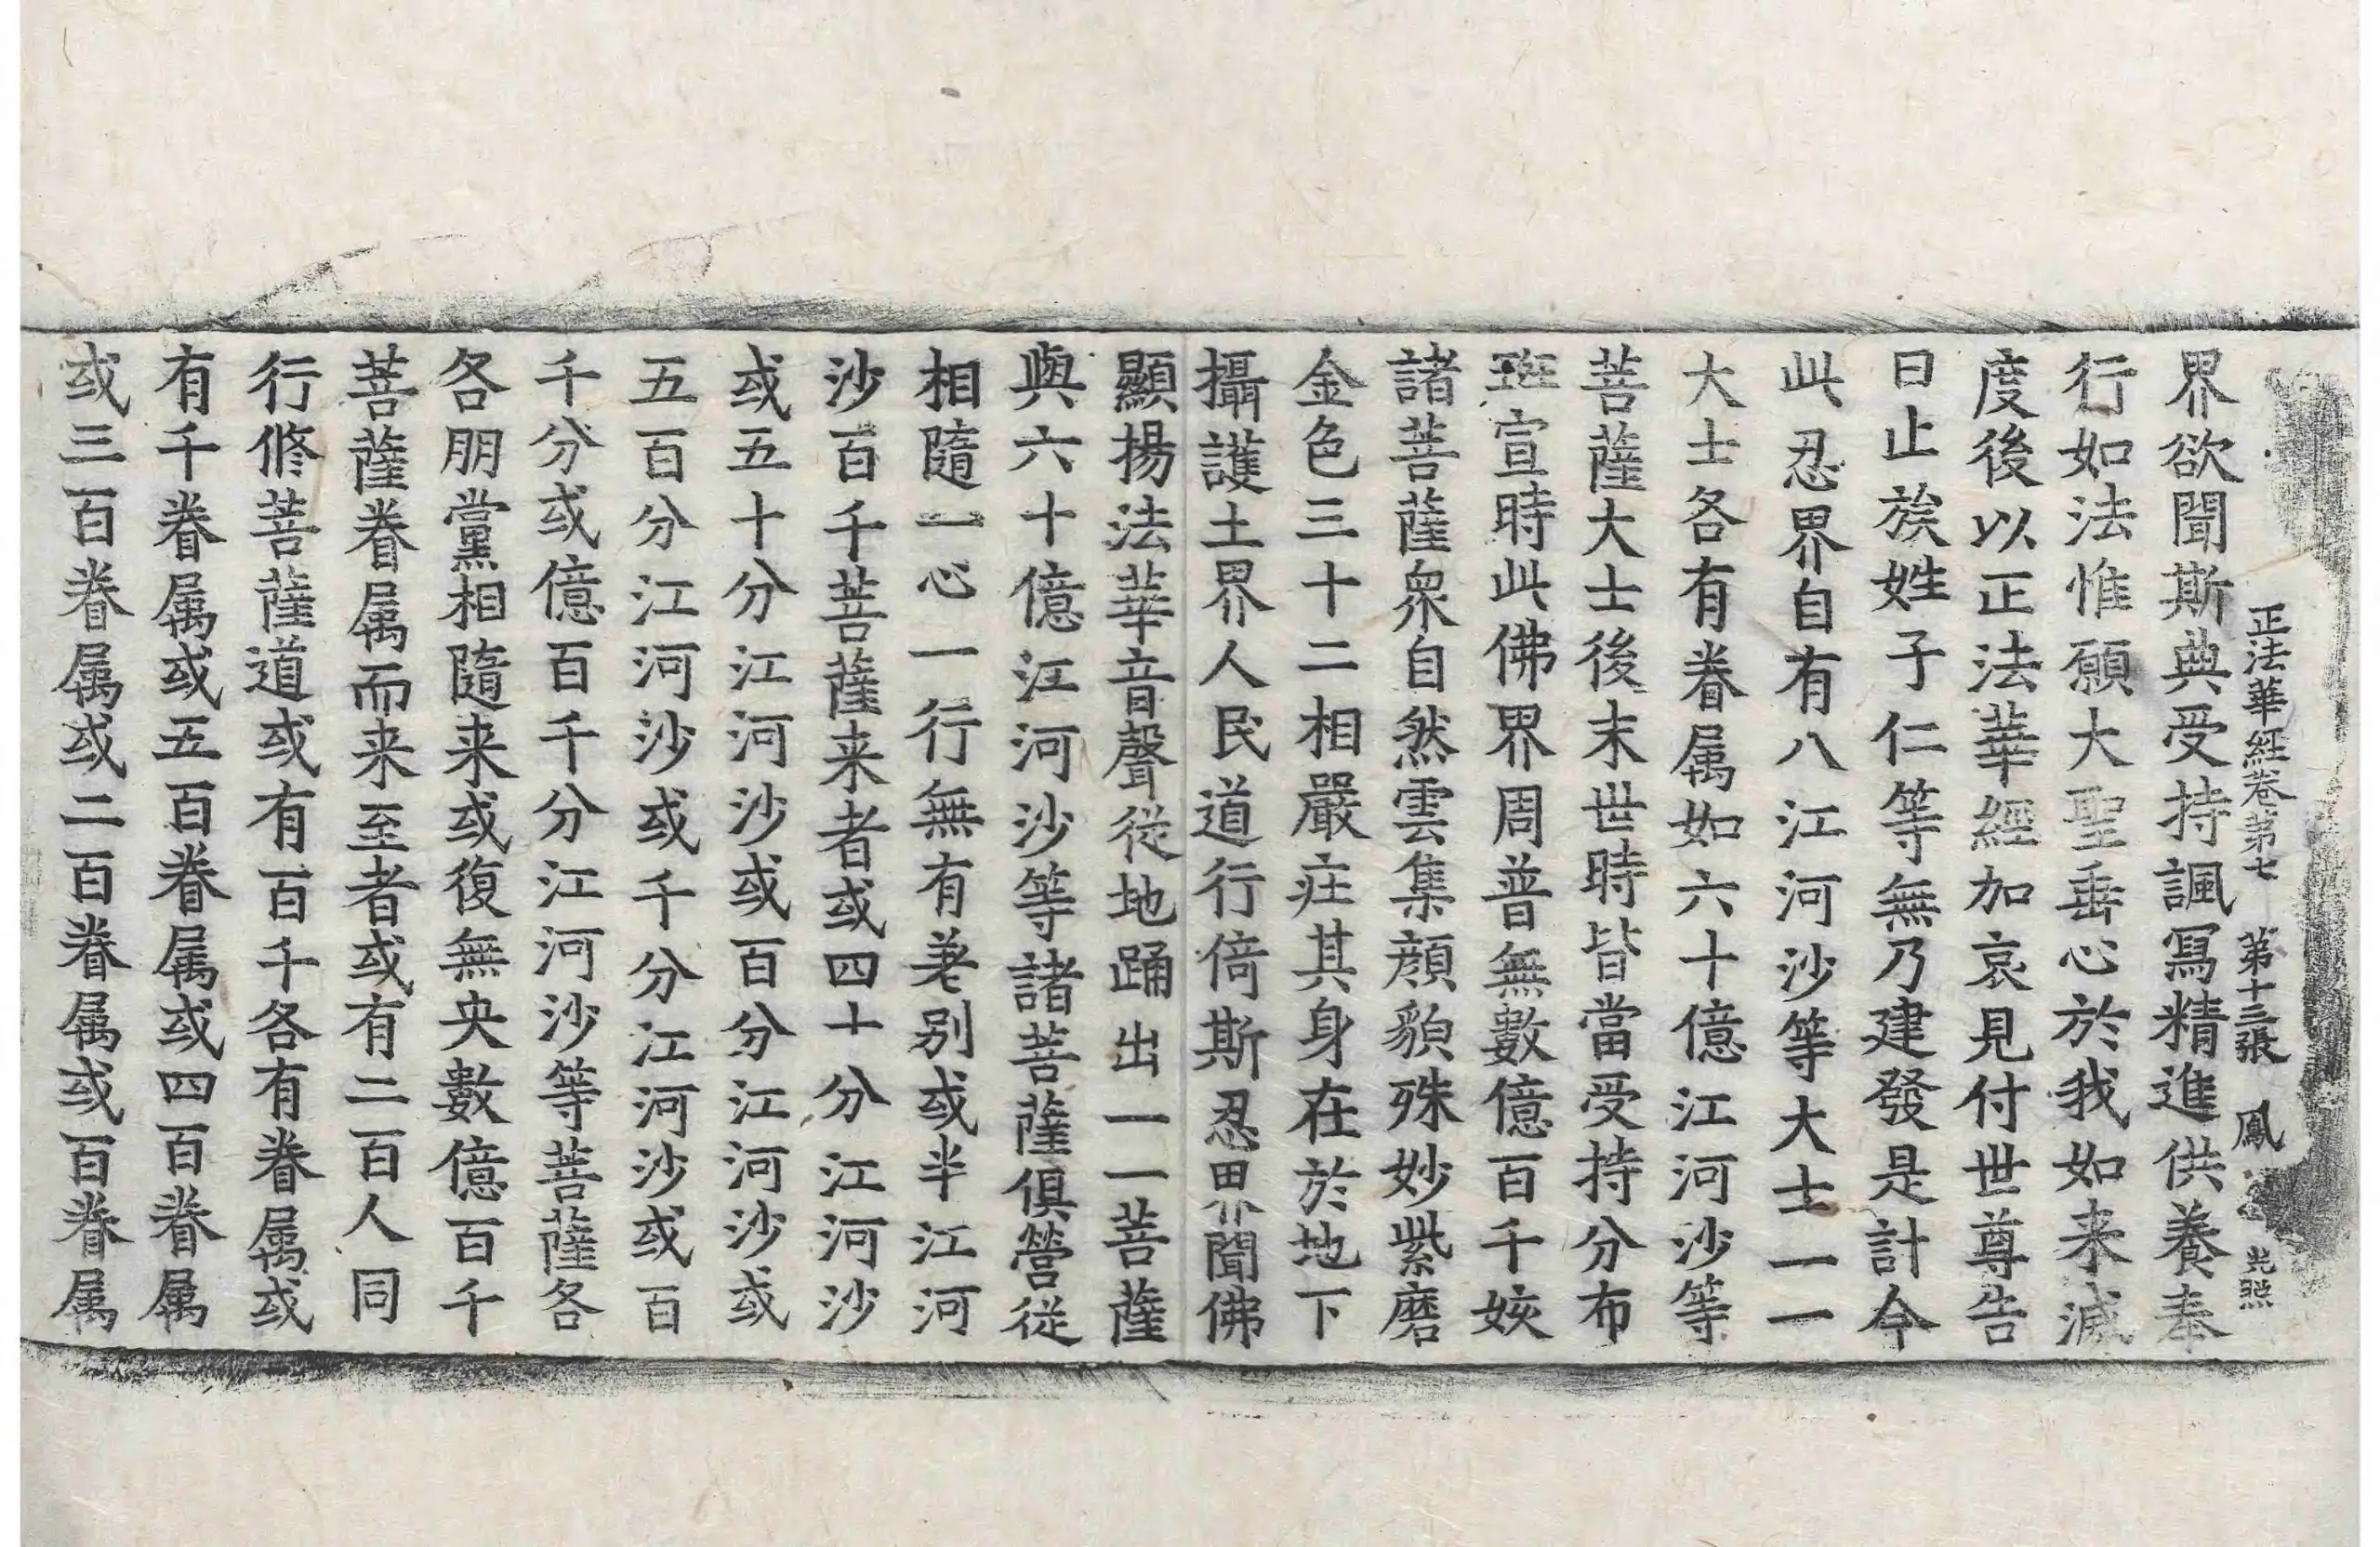 正法華經卷第七 第十三張 鳳 光照
界欲聞斯典受持諷冩精進供養奉
行如法惟願大聖垂心於我如来滅
度後以正法華經加哀見付世尊告
曰止族姓子仁等無乃建發是計今
此忍界自有八江河沙等大士一一
大士各有眷属如六十億江河沙等
菩薩大士後末世時皆當受持分布
班宣時此佛界周普無數億百千姟
諸菩薩衆自然雲集顔貌殊妙紫磨
金色三十二相嚴庄其身在於地下
攝護土界人民道行倚斯忍界聞佛
顯揚法華音聲従地踊出一一菩薩
與六十億江河沙等諸菩薩俱營従
相隨一心一行無有差别或半江河
沙百千菩薩来者或四十分江河沙
或五十分江河沙或百分江河沙或
五百分江河沙或千分江河沙或百
千分或億百千分江河沙等菩薩各
各朋黨相隨来或復無央數億百千
菩薩眷属而来至者或有二百人同
行修菩薩道或有百千各有眷属或
有千眷属或五百眷属或四百眷属
或三百眷属或二百眷属或百眷属